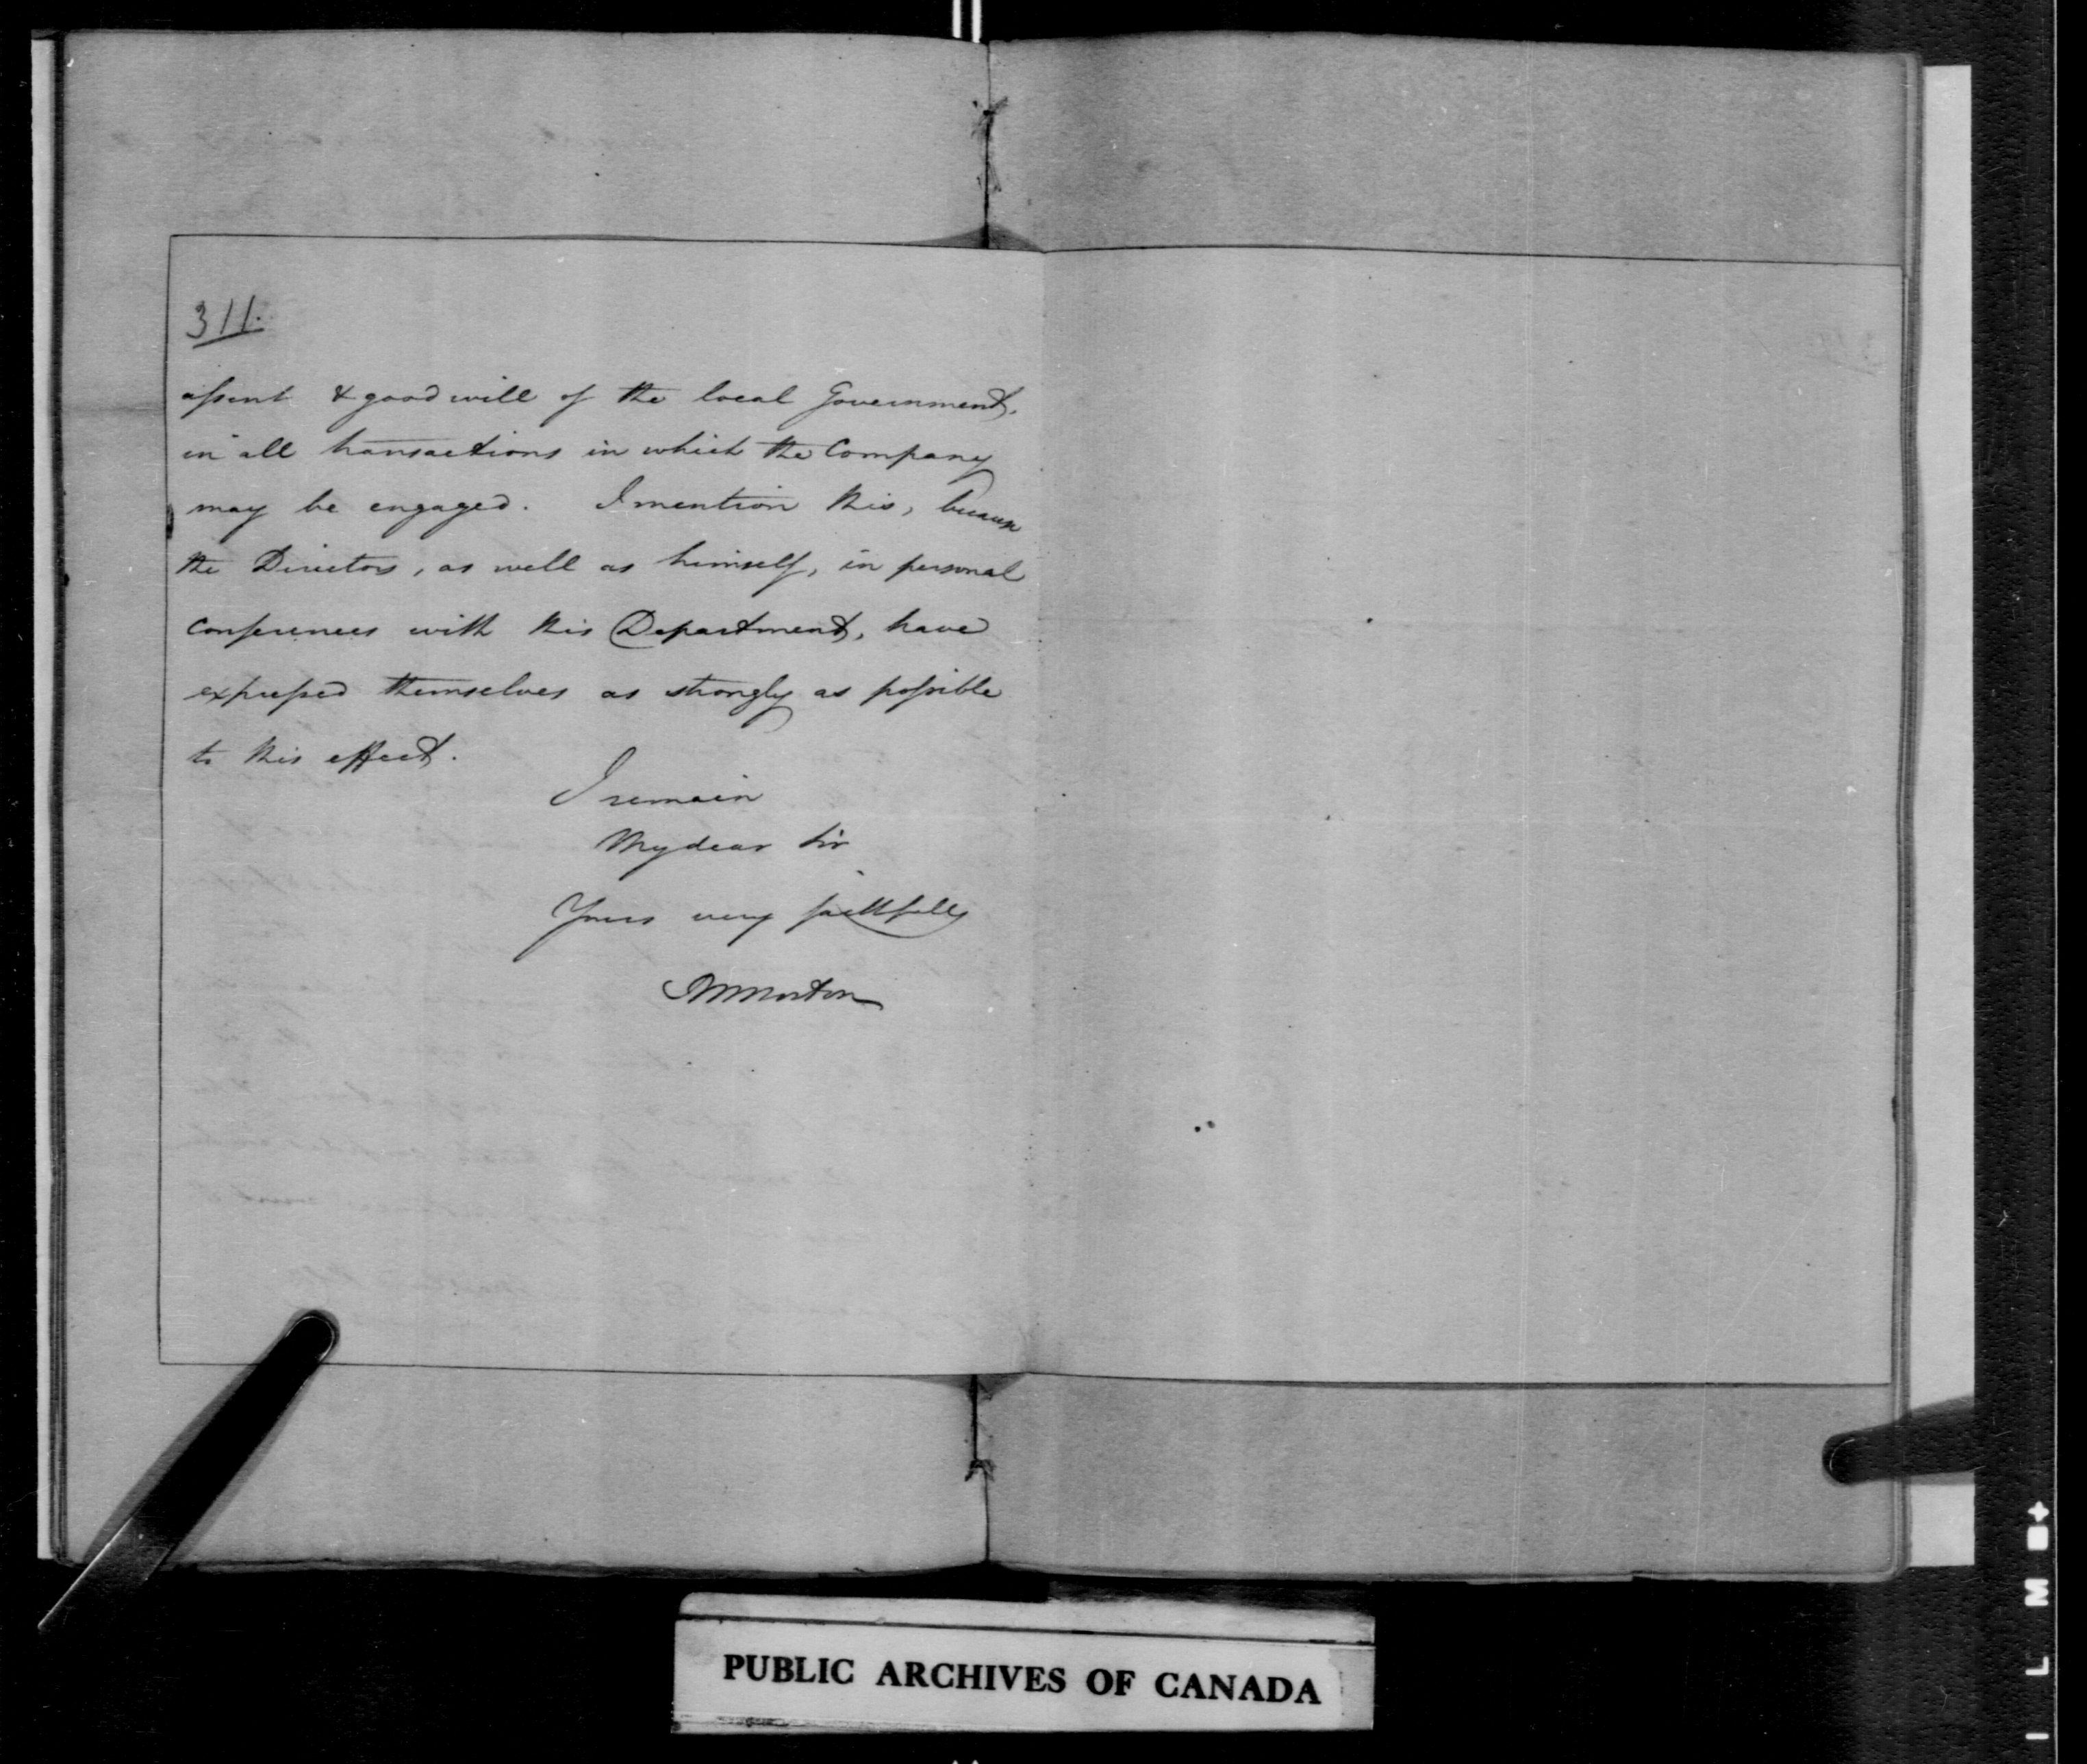 311.
assent & good will of the local Government,
in all transactions in which the Company
may be engaged. I mention this, because
the Directors, as well as himself, in personal
conferences with this Department, have
expressed themselves as strongly as possible
to this effect.
I remain
My dear Sir
Yours very faithfully
PUBLIC ARCHIVES OF CANADA
I L M